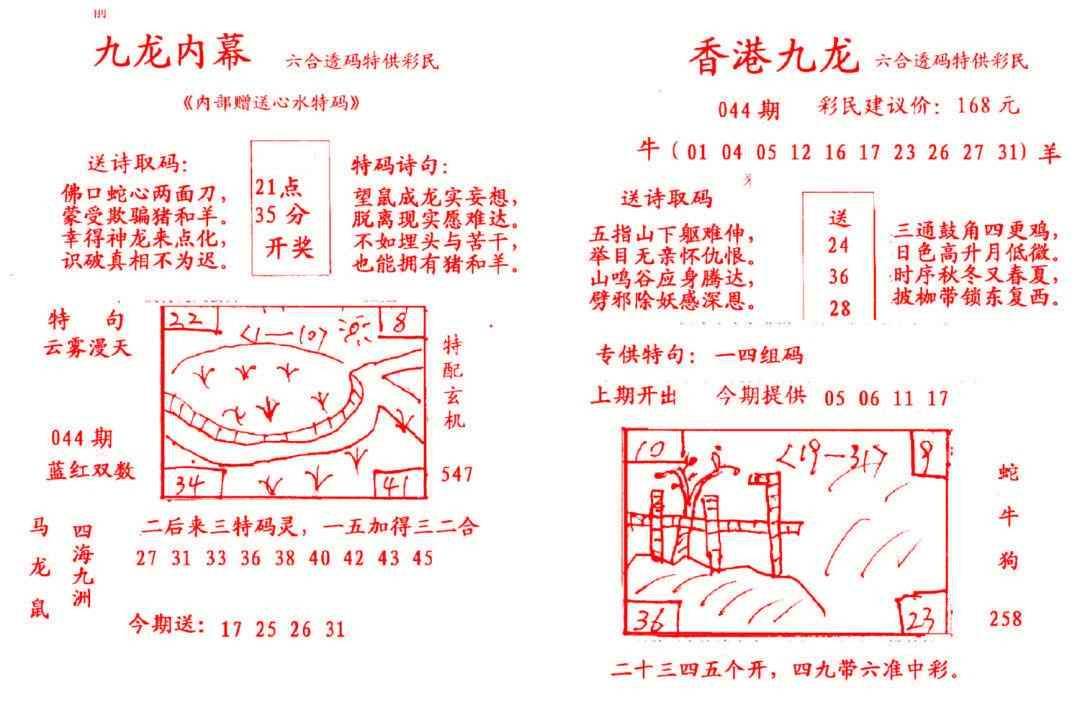 九龙内幕 六合透码特供彩民
《内部赠送心水特码》
送诗取码：
佛口蛇心两面刀，
蒙受欺骗猪和羊。
幸得神龙来点化，
识破真相不为迟。
21点
35分
开奖
特码诗句：
望鼠成龙实妄想，
脱离现实愿难达。
不如埋头与苦干，
也能拥有猪和羊。
特 句
云雾漫天
044期
蓝红双数
22
8
34
41
特配玄机
547
马龙鼠
四海九洲
二后来三特码灵，一五加得三二合
27 31 33 36 38 40 42 43 45
今期送：17 25 26 31
香港九龙 六合透码特供彩民
044期 彩民建议价：168元
牛（01 04 05 12 16 17 23 26 27 31）羊
送诗取码
五指山下躯难伸，
举目无亲怀仇恨。
山鸣谷应身腾达，
劈邪除妖感深恩。
送
24
36
28
三通鼓角四更鸡，
日色高升月低微。
时序秋冬又春夏，
披枷带锁东复西。
专供特句：一四组码
上期开出 今期提供 05 06 11 17
10
〈19—31〉
36
23
蛇牛狗
258
二十三四五个开，四九带六准中彩。